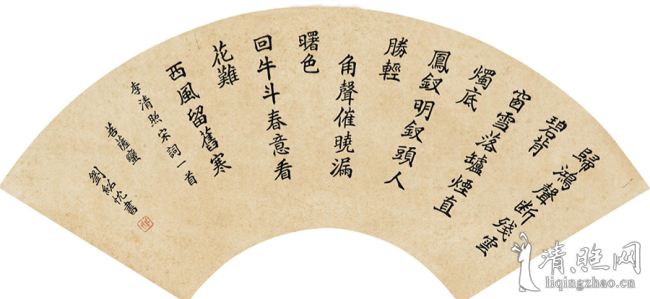 歸鴻聲断残雲
碧背
窗雪落罏煙直
燭底
鳳釵明釵頭人
勝輕
角聲催曉漏
曙色
回牛斗春意看
花難
西風留舊寒
李清照宋詞一首
菩薩蠻
劉紹忱書
清照网
liqingzhao.cn